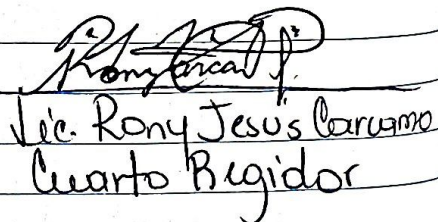 Lic. Rony Jesús Carcamo
Cuarto Regidor